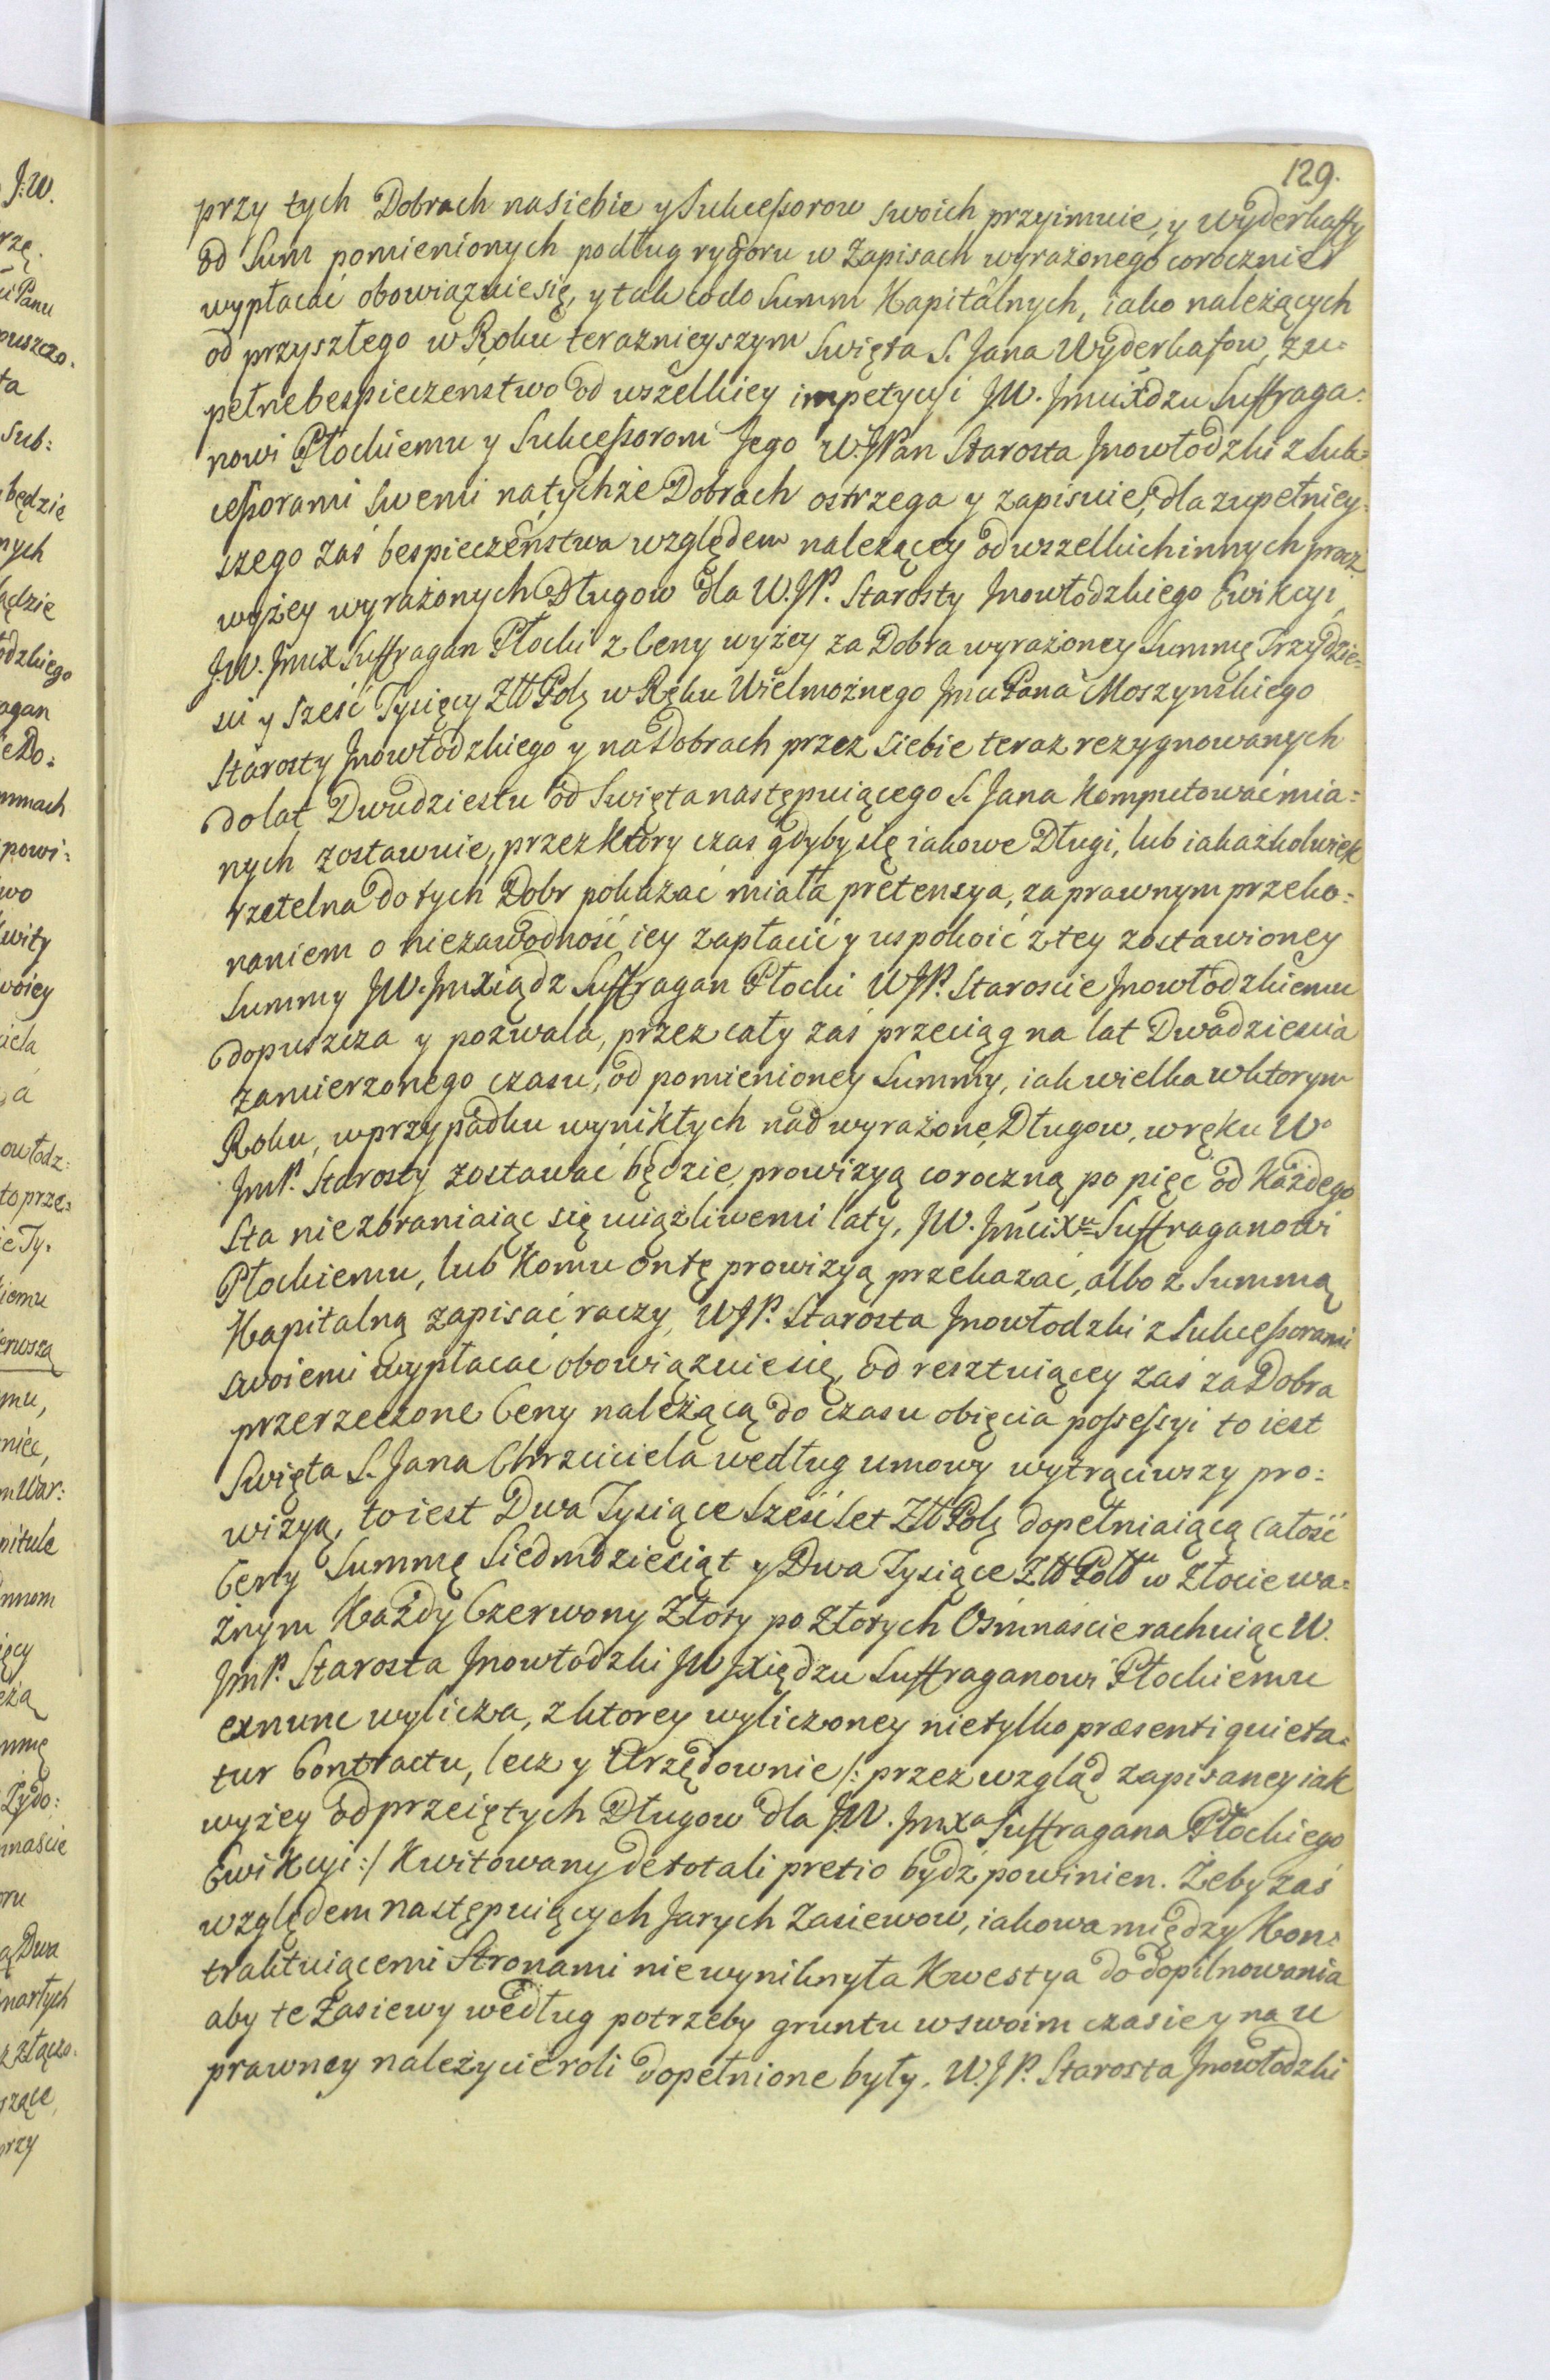 129.
przy tych Dobrach na siebie y Sukceßorow swoich przyimuie, y wyderkaffy
od Sum pomienionych podług rygoru w Zapisach wyrażonego corocznie
wypłacać obowiązuie się, y tak co do Summ Kapitalnych, iako należących
od przyszłego w Roku teraznieyszym Swięta S. Jana Wyderkafow, zu=
pełne bespieczeństwo od wszelkiey impetycyi JW. Jmcixdzu Suffraga=
nowi Płockiemu y Sukceßorom Jego W. JPan Starosta Jnowłodzki z Suk=
ceßorami swemi na tychże Dobrach ostrzega y zapisuie, dla zupełniey=
szego zaś bespieczeństwa względem należącey od wszelkich innych procz
wyżey wyrażonych Długow dla W. JP. Starosty Jnowłodzkiego Ewikcyi
J.W. Jmcix Suffragan Płocki z Ceny wyżey za Dobra wyrażoney Summę Trzydzie=
sci y Sześć Tysięcy Złł Polę w Ręku Wielmożnego Jmci Pana Moszynskiego
Starosty Jnowłodzkiego y na Dobrach przez siebie teraz rezygnowanych
do lat Dwudziestu od Swięta następuiącego S. Jana Komputować mia=
nych zostawuie, przez ktory czas gdyby się iakowe Długi, lub iakażkolwiek
rzetelna do tych Dobr pokazać miała pretensya, za prawnym przeko=
naniem o niezawodność iey zapłacić y uspokoić z tey zostawioney
Summy JW. Jmxiądz Suffragan Płocki WJP. Staroscie Jnowłodzkiemu
dopuszcza y pozwala, przez cały zaś przeciąg na lat Dwadziescia
zamierzonego czasu, od pomienioney Summy, iak wielka w ktorym
Roku, w przypadku wynikłych nad wyrażone Długow, w ręku W.
JmP. Starosty zostawać będzie, prowizyą coroczną po pięć od Każdego
Sta nie zbraniaiąc się uciążliwemi laty, JW. Jmcixu Suffraganowi
Płockiemu, lub Komu on tę prowizyą przekazać, albo z Summą
Kapitalną zapisać raczy, WJP. Starosta Jnowłodzki z Sukceßorami
swoiemi wypłacać obowiązuie się, od resztuiącey zaś za Dobra
przerzeczone Ceny należącą do czasu obięcia poßeßyi to iest
Swięta S. Jana Chrzciciela według umowy wytrąciwszy pro=
wizyą, to iest Dwa Tysiące Sześćset Złł Polę dopełniaiącą całość
Ceny Summę Siedmdziesiąt y Dwa Tysiące Złł Poll w Złocie wa=
żnym Każdy Czerwony Złoty po Złotych Ośmnaście rachuiąc W.
JmP. Starosta Jnowłodzki JW Jxiędzu Suffraganowi Płockiemu
exnunc wylicza, z ktorey wyliczoney nietylko præsenti quieta=
tur Contractu, lecz y Urzędownie /: przez wzgląd zapisaney iak
wyżey od przeiętych Długow dla J.W. Jmxa Suffragana Płockiego
Ewikcyi :/ Kwitowany de totali pretio bydź powinien. Żeby zaś
względem następuiących Jarych Zasiewow, iakowa między Kon=
traktuiącemi Stronami nie wyniknęła Kwestya do dopilnowania
aby te Zasiewy według potrzeby gruntu w swoim czasie y na u
prawney należycie roli dopełnione były. W. JP. Starosta Jnowłodzki